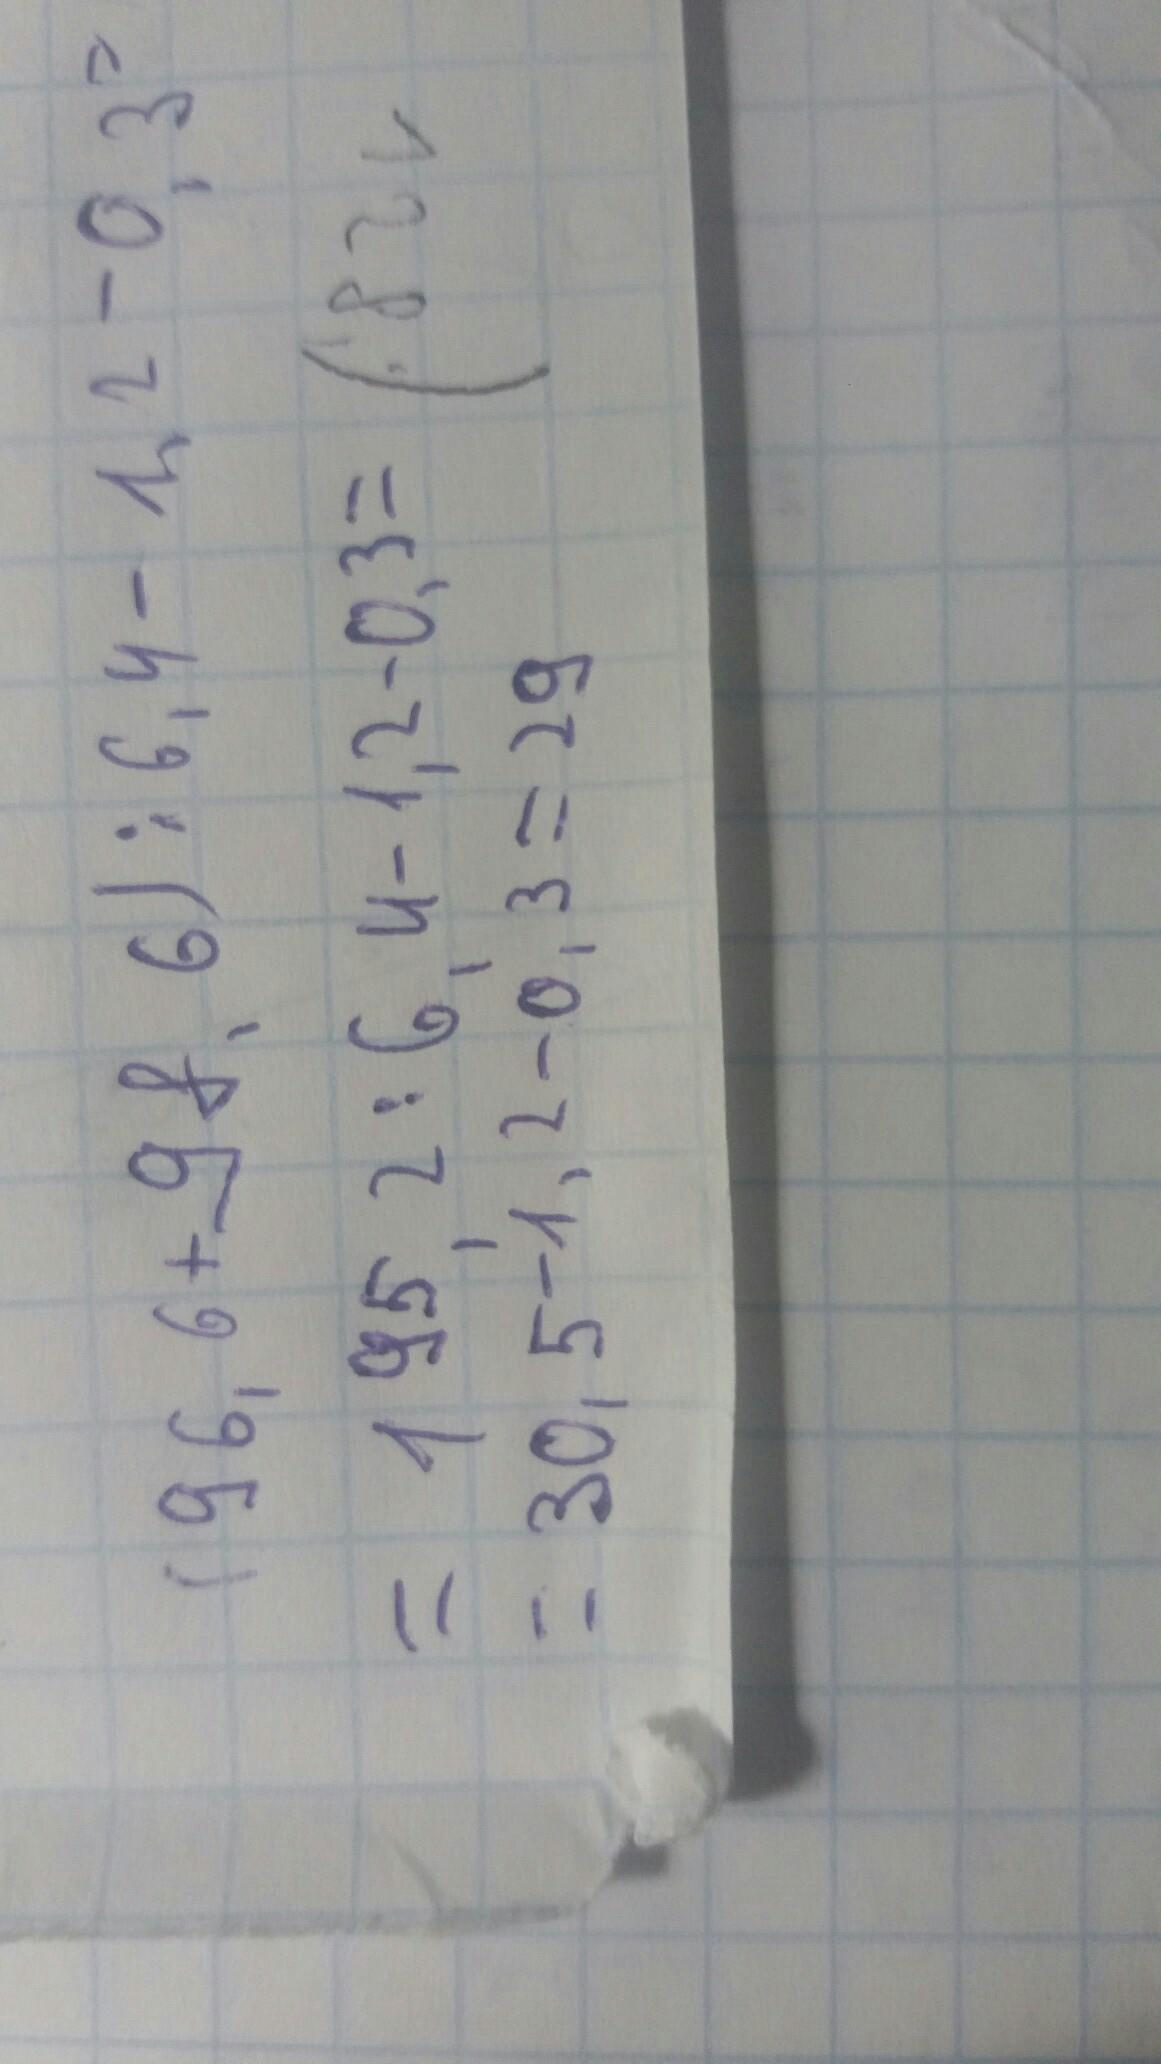 (96,6+98,6):6,4-1,2-0,3=
= 195,2:6,4-1,2-0,3=
= 30,5-1,2-0,3=29